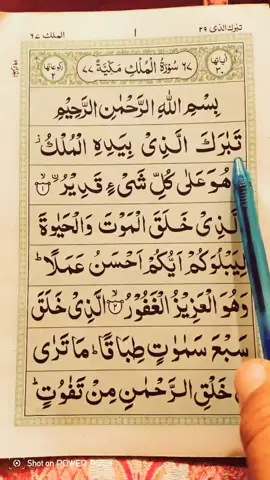 تبٰرك الذی ٢٩
١
الملك ٦٧
اٰیاتها ٣٠
٦٧ سُوْرَةُ الْمُلْكِ مَكِّیَّةٌ ٧٧
رکوعاتها ٢
بِسْمِ اللّٰهِ الرَّحْمٰنِ الرَّحِیْمِ
تَبٰرَكَ الَّذِیْ بِیَدِهِ الْمُلْكُ ز
هُوَ عَلٰی كُلِّ شَیْءٍ قَدِیْرُۨ ۙ ١
الَّذِیْ خَلَقَ الْمَوْتَ وَالْحَیٰوةَ
لِیَبْلُوَكُمْ اَیُّكُمْ اَحْسَنُ عَمَلًا ؕ
وَهُوَ الْعَزِیْزُ الْغَفُوْرُ ۙ ٢ الَّذِیْ خَلَقَ
سَبْعَ سَمٰوٰتٍ طِبَاقًا ؕ مَا تَرٰی
خَلْقِ الرَّحْمٰنِ مِنْ تَفٰوُتٍ ؕ
Shot on POWER